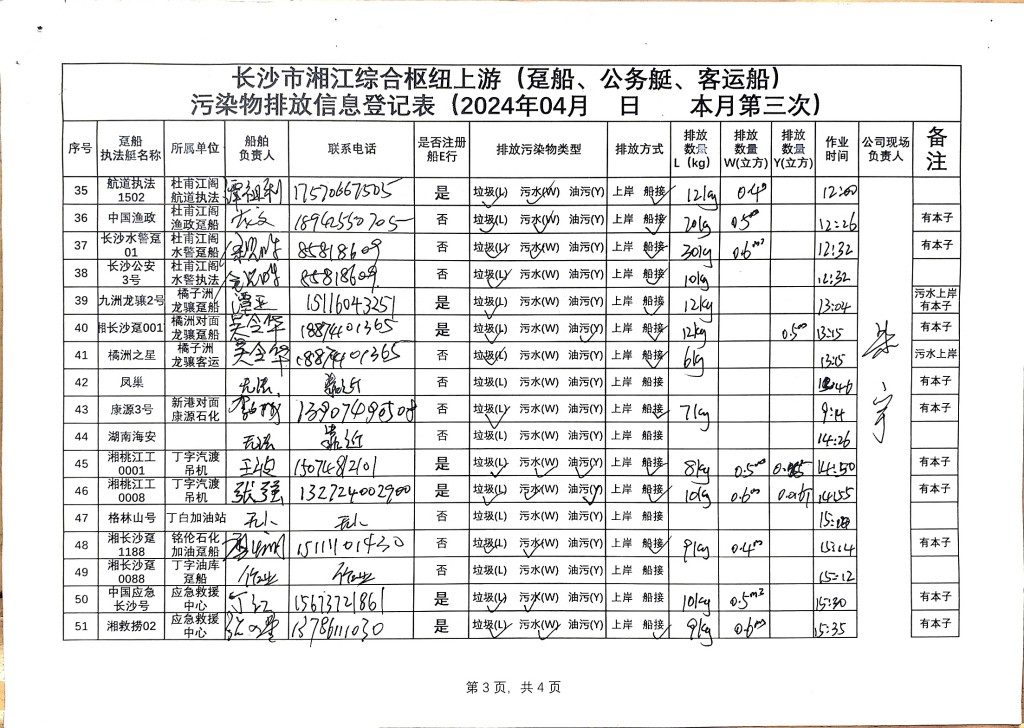 长沙市湘江综合枢纽上游（趸船、公务艇、客运船）
污染物排放信息登记表（2024年04月 日 本月第三次）
序号 趸船执法艇名称 所属单位 船舶负责人 联系电话 是否注册船E行 排放污染物类型 排放方式 排放数量L（kg） 排放数量W(立方) 排放数量Y(立方) 作业时间 公司现场负责人 备注
35 航道执法1502 杜甫江阁航道执法 谭祖利 17570667505 是 垃圾(L) 污水(W) 油污(Y) 上岸 船接 12kg 0.4 12:00
36 中国渔政 杜甫江阁渔政趸船 18942550705 否 垃圾(L) 污水(W) 油污(Y) 上岸 船接 20kg 0.5 12:26 有本子
37 长沙水警趸01 杜甫江阁水警趸船 85818609 否 垃圾(L) 污水(W) 油污(Y) 上岸 船接 30kg 0.6m³ 12:32 有本子
38 长沙公安3号 杜甫江阁水警执法 85818609 否 垃圾(L) 污水(W) 油污(Y) 上岸 船接 10kg 12:32
39 九洲龙骧2号 橘子洲龙骧趸船 谭正 15116043251 是 垃圾(L) 污水(W) 油污(Y) 上岸 船接 12kg 13:04 污水上岸有本子
40 湘长沙趸001 橘洲对面龙骧趸船 吴金华 18874401365 是 垃圾(L) 污水(W) 油污(Y) 上岸 船接 12kg 0.5 13:15 有本子
41 橘洲之星 橘子洲龙骧客运 吴金华 18874401365 否 垃圾(L) 污水(W) 油污(Y) 上岸 船接 6kg 13:15 污水上岸
42 凤巢 无法 靠近 否 垃圾(L) 污水(W) 油污(Y) 上岸 船接 有本子
43 康源3号 新港对面康源石化 13907496508 否 垃圾(L) 污水(W) 油污(Y) 上岸 船接 7kg 9:14 有本子
44 湖南海安 无法 靠近 否 垃圾(L) 污水(W) 油污(Y) 上岸 船接 14:26
45 湘桃江工0001 丁字汽渡吊机 15074812101 是 垃圾(L) 污水(W) 油污(Y) 上岸 船接 8kg 0.5 14:50 有本子
46 湘桃江工0008 丁字汽渡吊机 张强 132724002900 是 垃圾(L) 污水(W) 油污(Y) 上岸 船接 10kg 0.6 14:55 有本子
47 格林山号 丁白加油站 无人 无人 否 垃圾(L) 污水(W) 油污(Y) 上岸 船接
48 湘长沙趸1188 铭伦石化加油趸船 15111101430 否 垃圾(L) 污水(W) 油污(Y) 上岸 船接 9kg 0.4 15:14 有本子
49 湘长沙趸0088 丁字油库趸船 作业 作业 否 垃圾(L) 污水(W) 油污(Y) 上岸 船接 15:12
50 中国应急长沙号 应急救援中心 15673721861 是 垃圾(L) 污水(W) 油污(Y) 上岸 船接 10kg 0.5m³ 15:30 有本子
51 湘救捞02 应急救援中心 13786111030 是 垃圾(L) 污水(W) 油污(Y) 上岸 船接 9kg 0.6 15:35 有本子
第 3 页，共 4 页